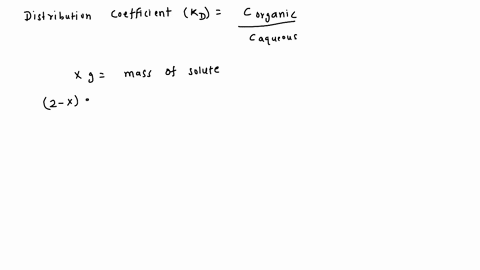 Distribution Coefficient (KD) = C organic / C aqueous
x g = mass of solute
(2-x) •